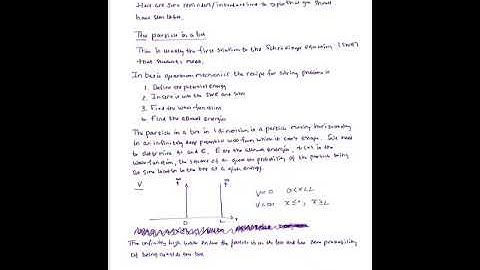 Here are some reminders/introductions to topics that you should
have seen before.
The particle in a box
This is usually the first solution to the Schrodinger equation (SWE)
that students meet.
In basic quantum mechanics the recipe for solving problems is
1. Define the potential energy
2. Insert it into the SWE and solve
3. Find the wavefunctions
4. Find the allowed energies
The particle in a box in 1 dimension is a particle moving horizontally
in an infinitely deep potential well from which it can't escape. We need
to determine and E. E are the allowed energies, is the
wavefunction, the square of gives the probability of the particle being
at some location in the box at a given energy.
V
0 L
V=0 0<x<L
V=∞ x≤0, x≥L
The infinitely high walls the particle is in the box and has zero probability
of being outside the box.